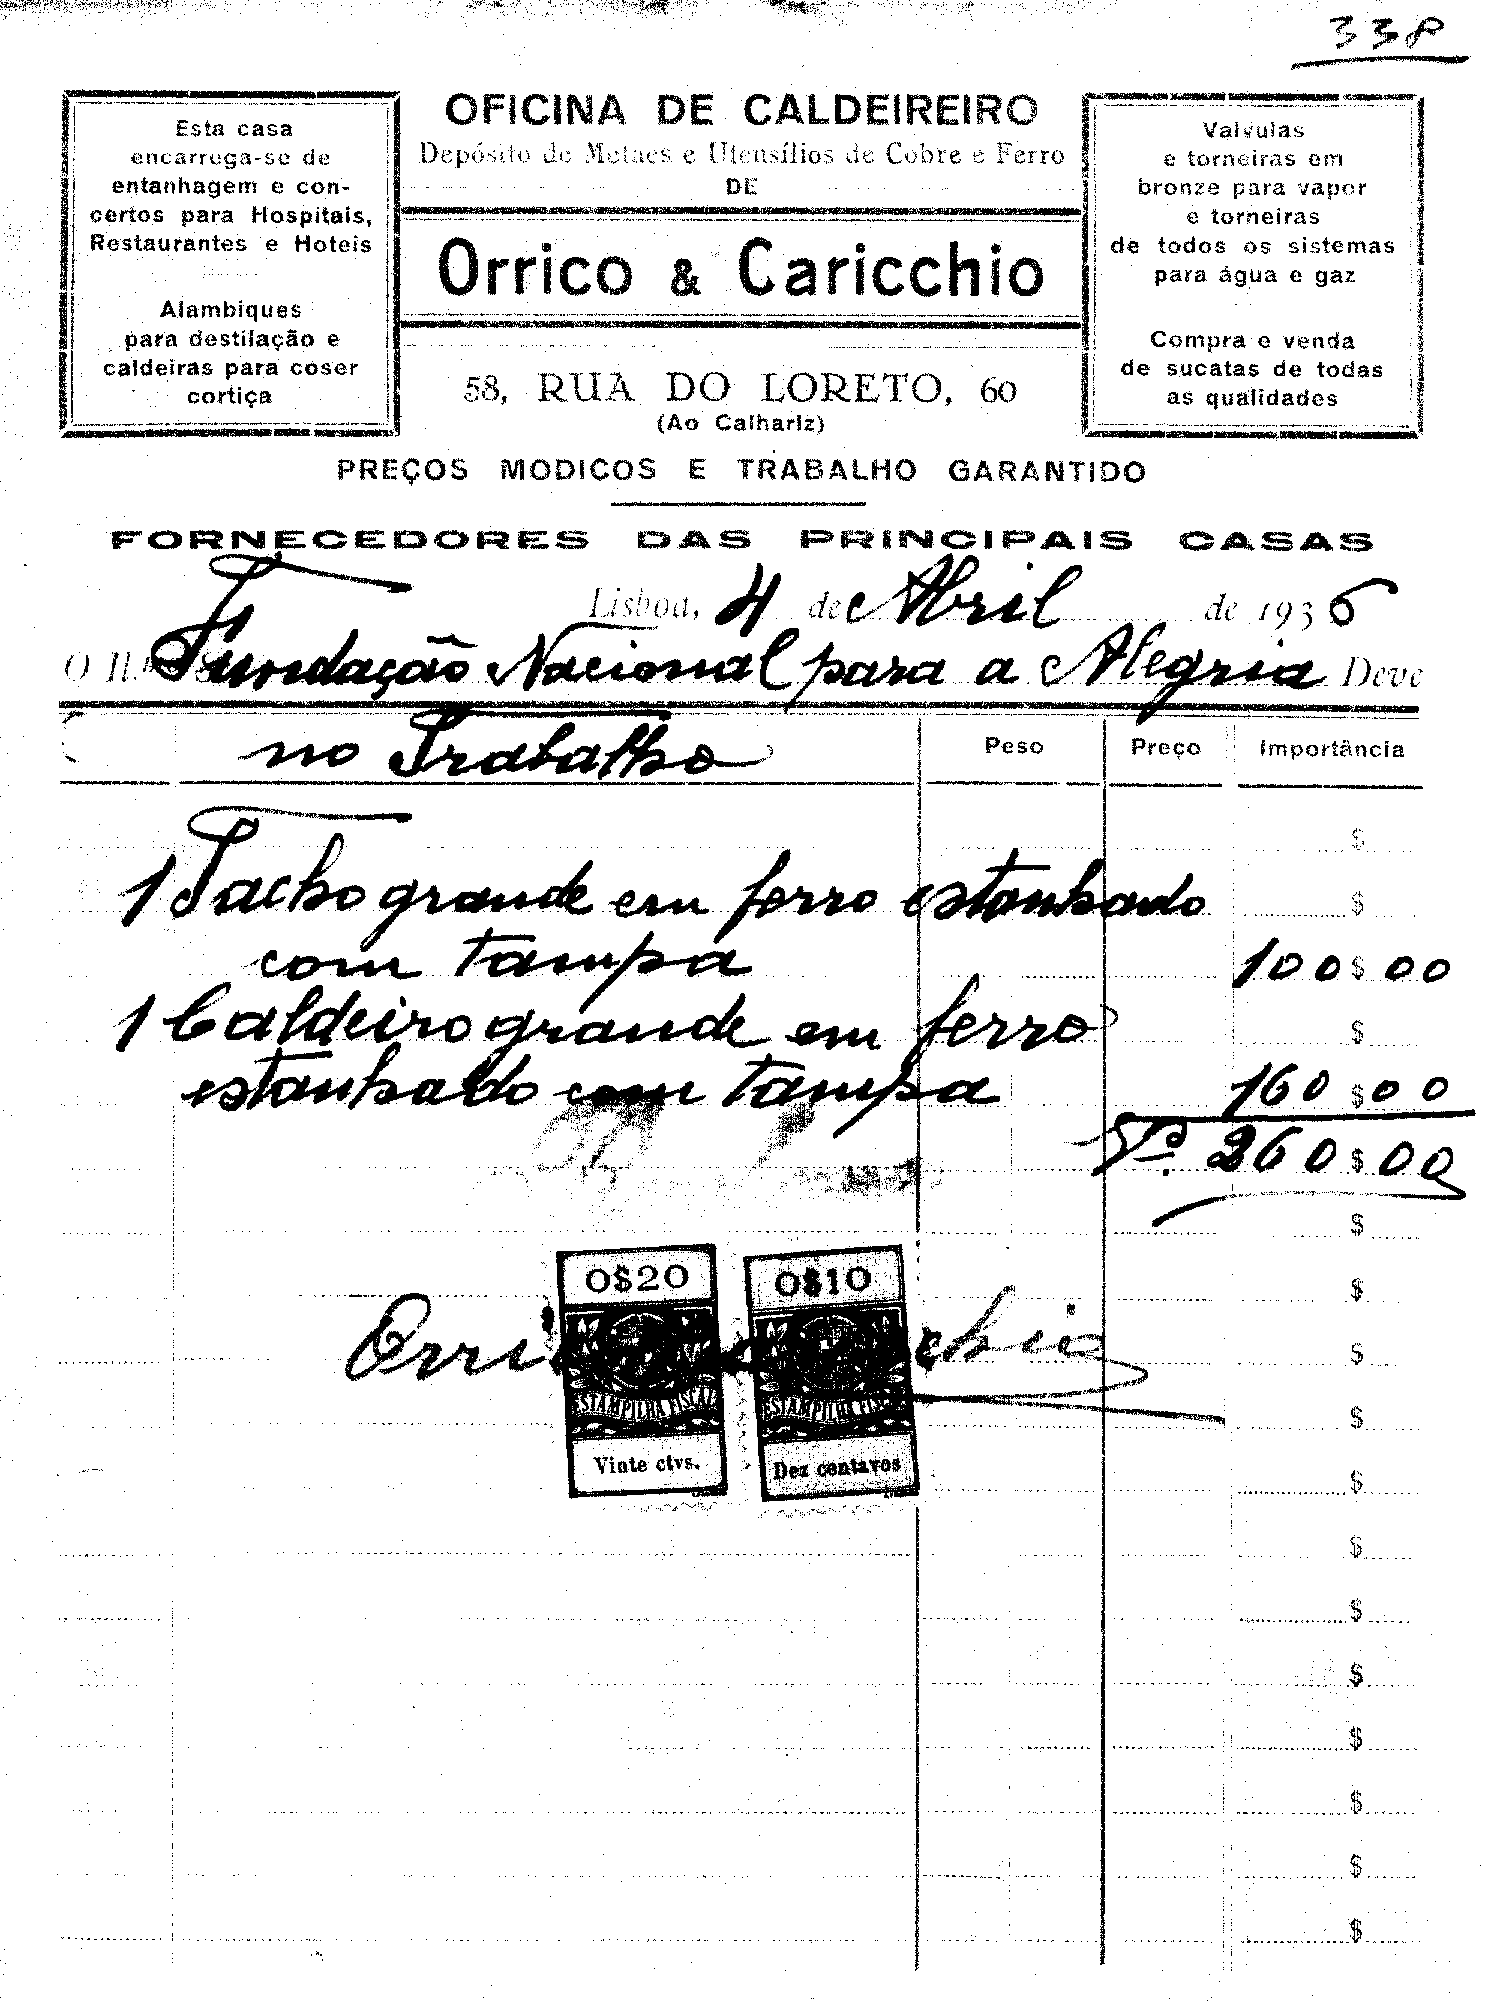 338
Esta casa
encarrega-se de
entanhagem e con-
certos para Hospitais,
Restaurantes e Hoteis
Alambiques
para destilação e
caldeiras para coser
cortiça
OFICINA DE CALDEIREIRO
Depósito de Metaes e Utensílios de Cobre e Ferro
DE
Orrico & Caricchio
58, RUA DO LORETO, 60
(Ao Calhariz)
Valvulas
e torneiras em
bronze para vapor
e torneiras
de todos os sistemas
para água e gaz
Compra e venda
de sucatas de todas
as qualidades
PREÇOS MODICOS E TRABALHO GARANTIDO
FORNECEDORES DAS PRINCIPAIS CASAS
Lisboa, 4 de Abril de 1936
O Il.mo Fundação Nacional para a Alegria Deve
no Trabalho
Peso Preço Importância
$
1 Tacho grande em ferro estanhado $
com tampa 100$00
1 Caldeiro grande em ferro $
estanhado com tampa 160$00
260$00
$
0$20 0$10
$
Orri chio $
ESTAMPILHA FISCAL ESTAMPILHA FISCAL
$
Vinte ctvs. Dez centavos
$
$
$
$
$
$
$
$